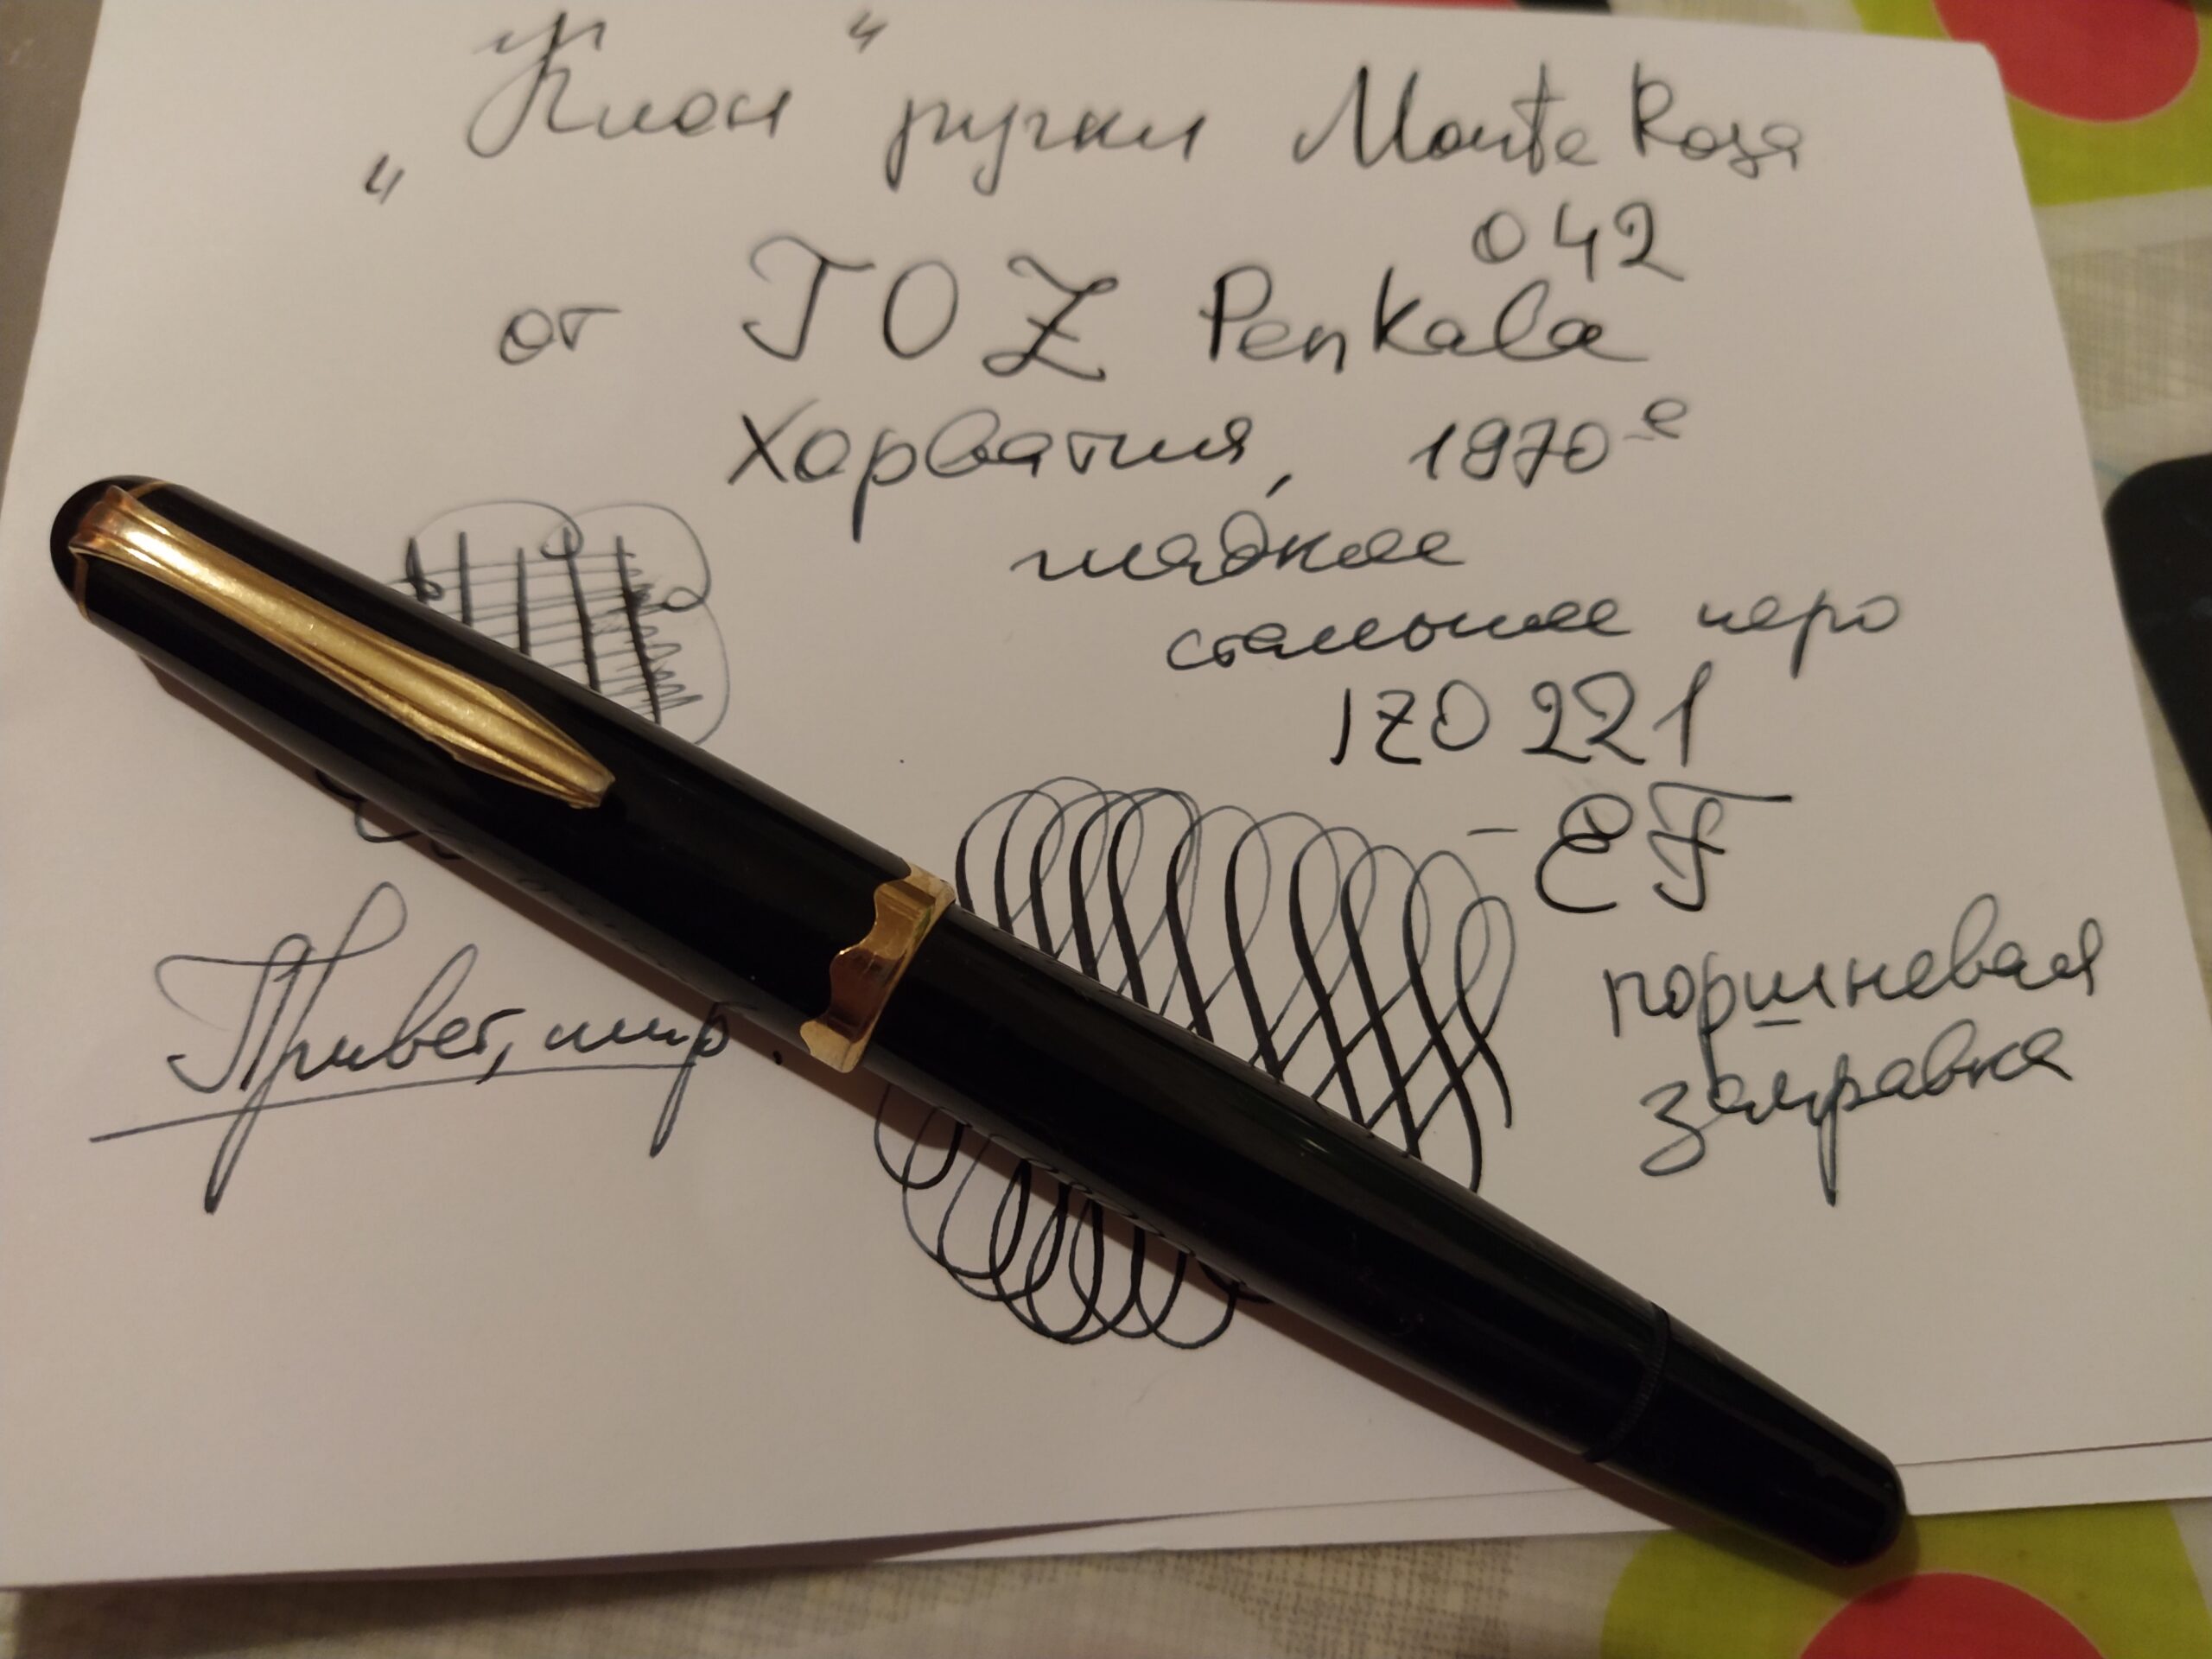 „Клон“ ручки Monte Rosa
042
от TOZ Penkala
Хорватия, 1970-е
гладкое
стальное перо
IZO 221
- EF
поршневая
заправка
Привет, мир.